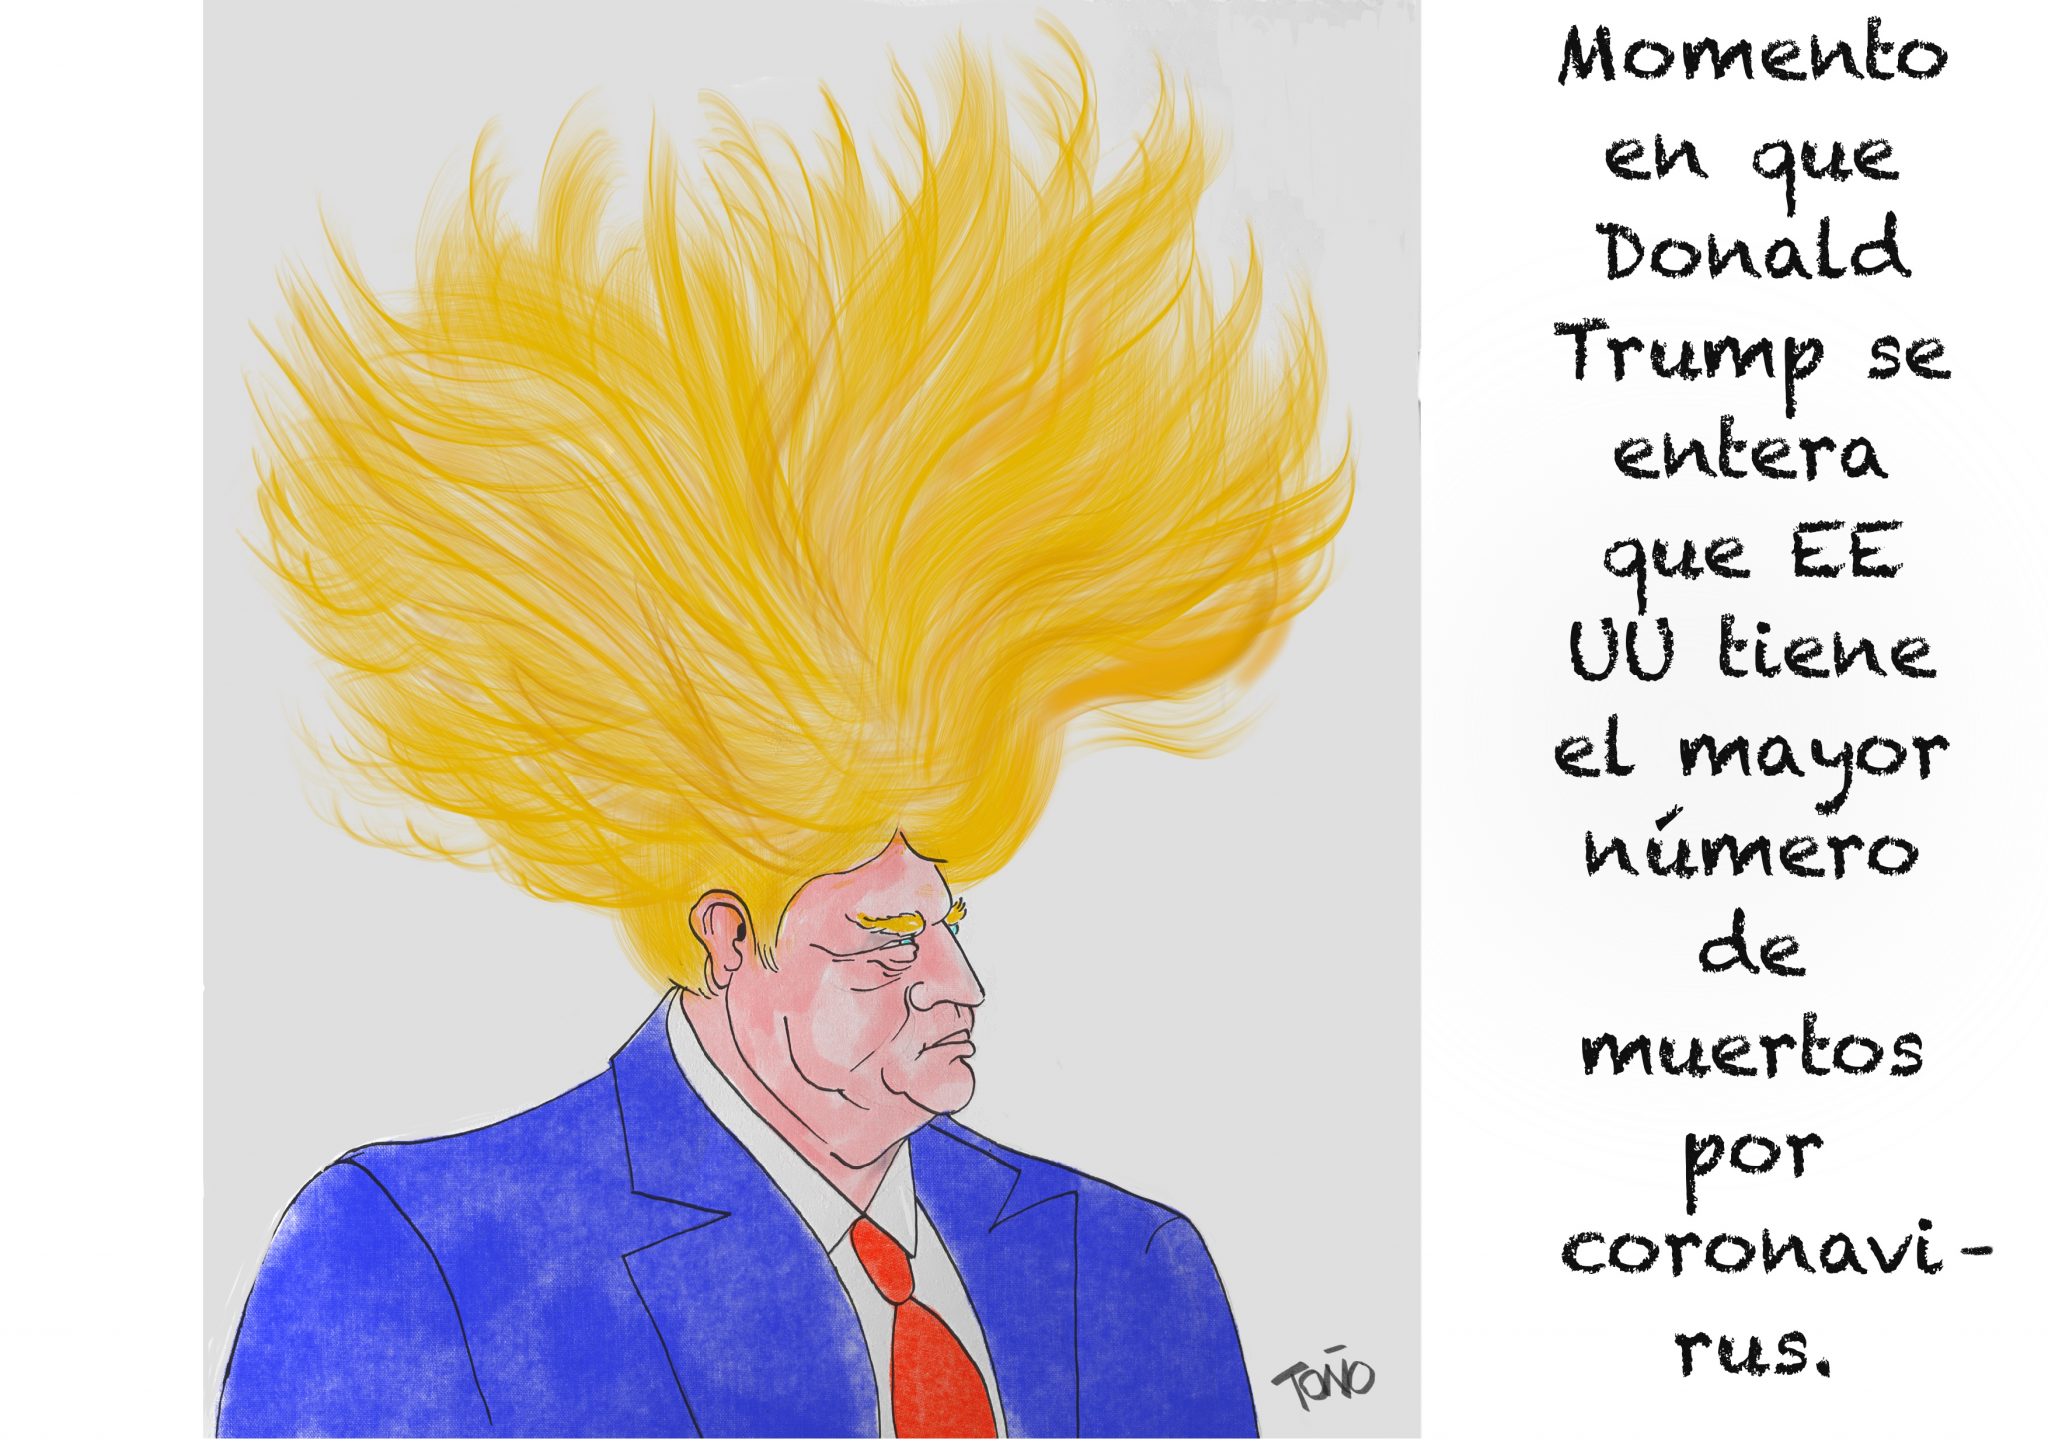 Momento
en que
Donald
Trump se
entera
que EE
UU tiene
el mayor
número
de
muertos
por
coronavi-
rus.
TOÑO